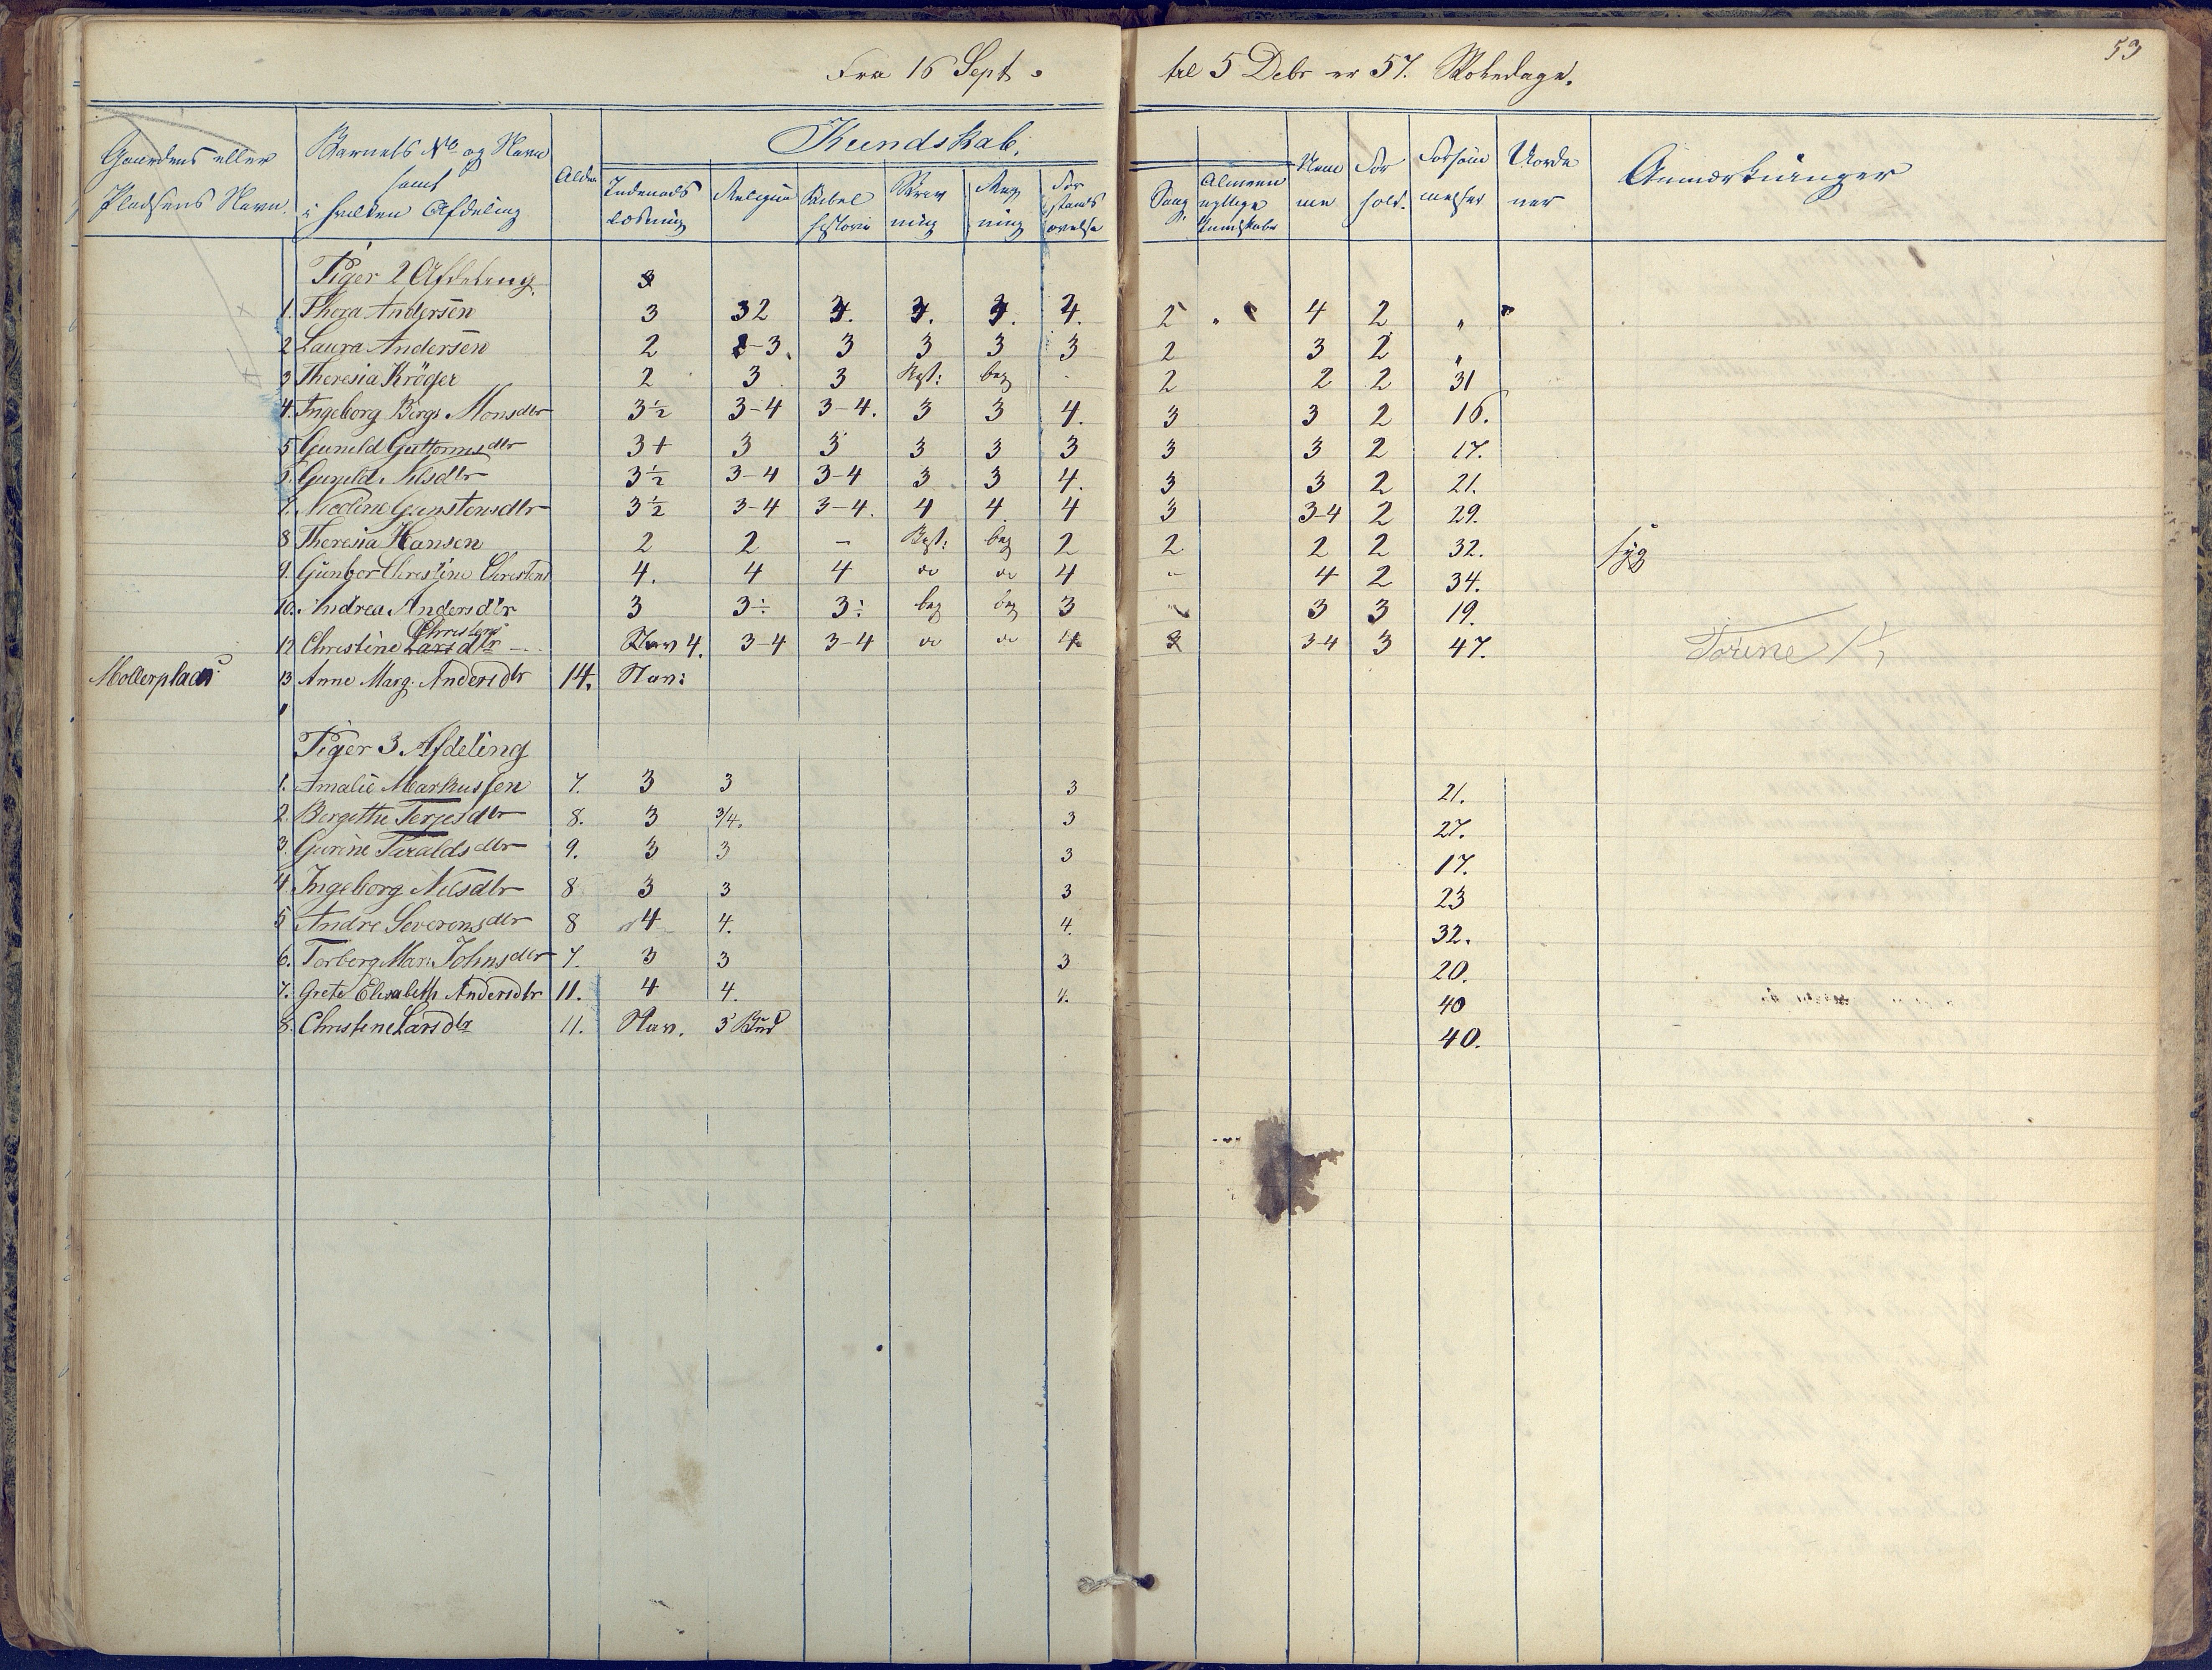 53
Fra 16 Sept. til 5 Debr er 57. Skoledage.
Gaardens eller Pladsens Navn.
Barnets No og Navn samt i hvilken Afdeling
Alder
Kundskab.
Indenads læsning
Religion
Bibel historie
Skriv ning
Reg ning
For stands øvelse
Sang.
Almeen nyttige Kundskaber
Nem me
For hold.
Forsöm melser
Vorde ner
Anmærkninger
Piger 2 Afdeling. 3
1. Thora Andersen 3 32 3. 3. 3. 4. 2 " 4 2 "
2 Laura Andersen 2 2-3. 3 3 3 3 2 3 2 "
3 Theresia Kröger 2 3 3 Bgst: beg 2 2 2 31
4. Ingeborg Birgt Monsdtr 3½ 3-4 3-4. 3 3 4. 3 3 2 16.
5 Gunild Guttormsdtr 3+ 3 3 3 3 3 3 3 2 17.
6. Gunild Nilsdtr 3½ 3-4 3-4 3 3 4. 3 3 2 21.
7. Nicoline Gunstensdtr 3½ 3-4 3-4. 4 4 4 3 3-4 2 29.
8 Theresia Hansen 2 2 - Bgst: beg 2 2 2 2 32. syg
9. Gunbor Christine Christens 4. 4 4 do do 4 - 4 2 34.
10. Andrea Andersdtr 3 3÷ 3÷ beg beg 3 3 3 19.
Christens
12 Christine Larsdtr Stav 4. 3-4 3-4 do do 4 3 3-4 3 47. Torine
Mollerplads 13 Anne Marg. Andersdtr 14. Stav:
Piger 3. Afdeling
1. Amalie Markussen 7. 3 3 3 21.
2. Bergithe Terjesdtr 8. 3 3/4. 3 27.
3. Gurine Taraldsdtr 9. 3 3 3 17.
4. Ingeborg Nilsdtr 8 3 3 3 23
5 Andre Severensdtr 8 4 4. 4. 32.
6. Torberg Mar. Johnsdtr 7. 3 3 3 20.
7. Grete Elisabeth Andersdtr 11. 4 4. 4. 40
8. Christine Larsdtr 11. Stav. 3 Bud 40.